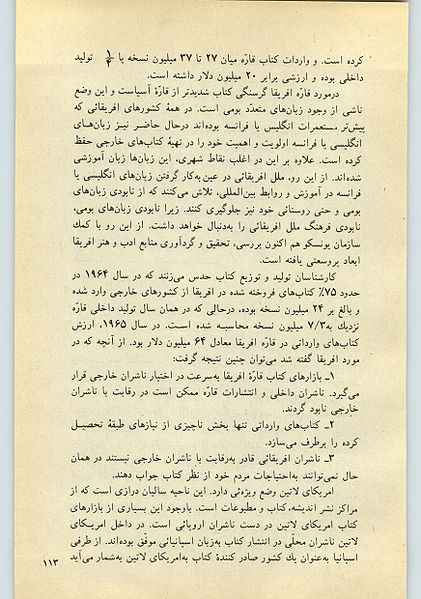 کرده است. و واردات کتاب قاره میان ۲۷ تا ۳۷ میلیون نسخه یا تولید
داخلی بوده و ارزشی برابر ۲۰ میلیون دلار داشته است.
درمورد قارّه افریقا گرسنگی کتاب شدیدتر از قارّهٔ آسیاست و این وضع
ناشی از وجود زبان‌های متعدّد بومی است. در همهٔ کشورهای افریقائی که
پیش‌تر مستعمرات انگلیس یا فرانسه بوده‌اند درحال حاضر نیز زبان‌های
انگلیسی یا فرانسه اولویت و اهمیت خود را در تهیهٔ کتاب‌های خارجی حفظ
کرده است. علاوه بر این در اغلب نقاط شهری، این زبان‌ها زبان آموزشی
شده‌اند. از این رو، ملل افریقائی در عین به‌کار گرفتن زبان‌های انگلیسی یا
فرانسه در آموزش و روابط بین‌المللی، تلاش می‌کنند که از نابودی زبان‌های
بومی و حتی روستائی خود نیز جلوگیری کنند. زیرا نابودی زبان‌های بومی،
نابودی فرهنگ ملل افریقائی را به‌دنبال خواهد داشت. از این رو با کمك
سازمان یونسکو هم اکنون بررسی، تحقیق و گردآوری منابع ادب و هنر افریقا
ابعاد پروسعتی یافته است.
کارشناسان تولید و توزیع کتاب حدس می‌زنند که در سال ۱۹۶۴ در
حدود ۷۵٪ کتاب‌های فروخته شده در افریقا از کشورهای خارجی وارد شده
و بالغ بر ۲۴ میلیون نسخه بوده، درحالی که در همان سال تولید داخلی قارّه
نزدیك به ۷/۳ میلیون نسخه محاسبه شده است. در سال ۱۹۶۵، ارزش
کتاب‌های وارداتی در قارّه افریقا معادل ۶۴ میلیون دلار بود. از آنچه که در
مورد افریقا گفته شد می‌توان چنین نتیجه گرفت:
۱ـ بازارهای کتاب قارّهٔ افریقا به‌سرعت در اختیار ناشران خارجی قرار
می‌گیرد. ناشران داخلی و انتشارات قارّه ممکن است در رقابت با ناشران
خارجی نابود گردند.
۲ـ کتاب‌های وارداتی تنها بخش ناچیزی از نیازهای طبقهٔ تحصیل
کرده را برطرف می‌سازد.
۳ـ ناشران افریقائی قادر به‌رقابت با ناشران خارجی نیستند در همان
حال نمی‌توانند به‌احتیاجات مردم خود از نظر کتاب جواب دهند.
امریکای لاتین وضع ویژه‌ئی دارد. این ناحیه سالیان درازی است که از
مراکز نشر اندیشه، کتاب و مطبوعات است. باوجود این بسیاری از بازارهای
کتاب امریکای لاتین در دست ناشران اروپائی است. در داخل امریکای
لاتین ناشران محلّی در انتشار کتاب به‌زبان اسپانیائی موفّق بوده‌اند. از طرفی
اسپانیا به‌عنوان یك کشور صادر کنندهٔ کتاب به‌امریکای لاتین به‌شمار می‌آید
۱۱۳